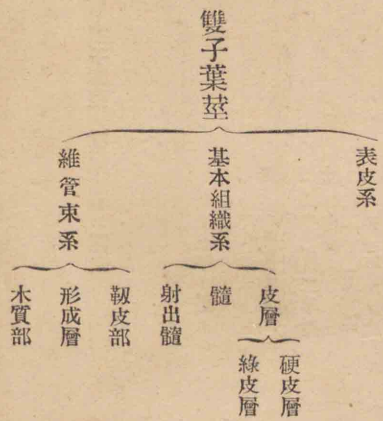 雙子葉莖
表皮系
基本組織系
皮層
硬皮層
綠皮層
髓
射出髓
維管束系
靱皮部
形成層
木質部